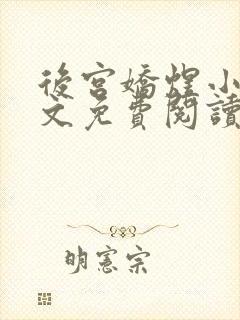 後宮嬌煋小
文免費閱讀
明憲宗